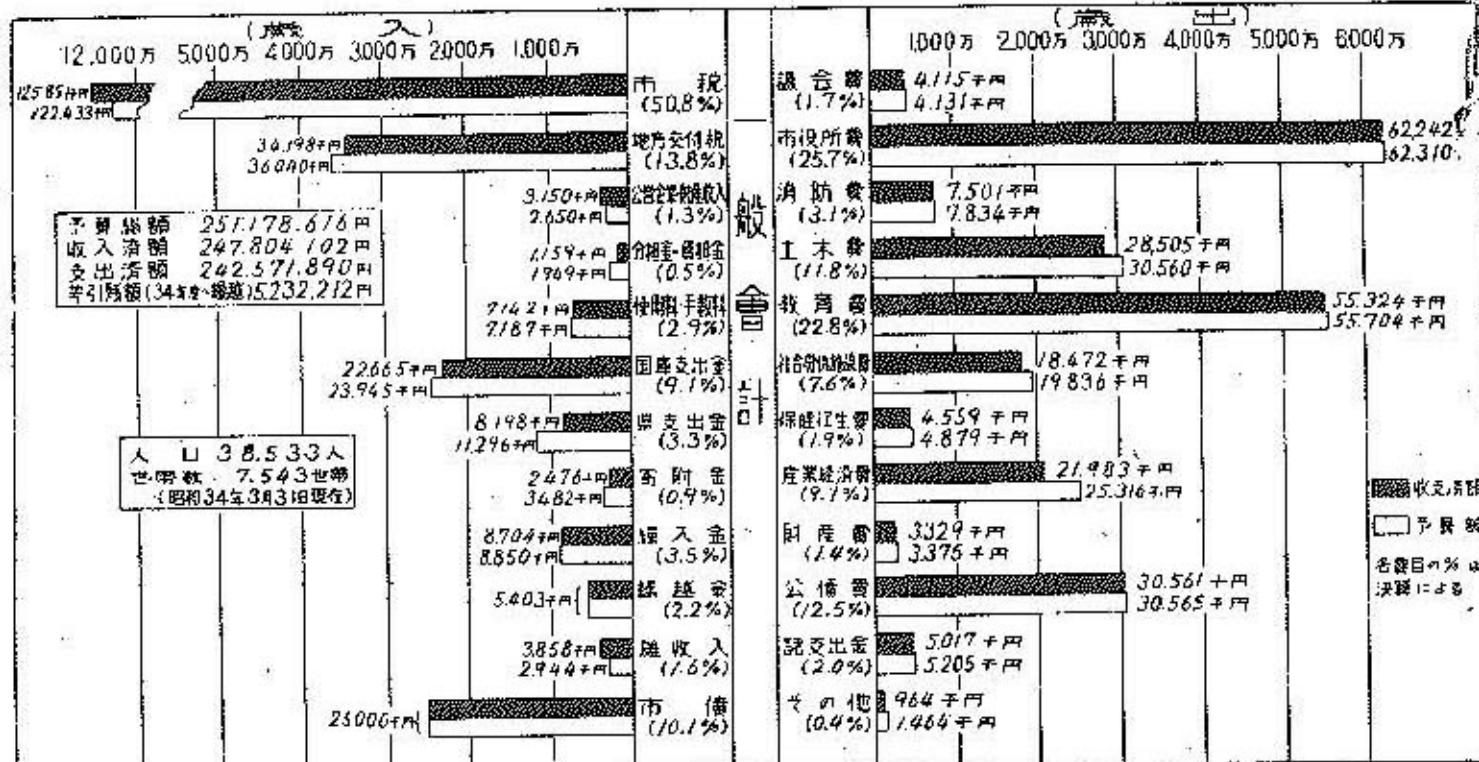 (歳入)
12,000万 5,000万 4,000万 3,000万 2,000万 1,000万
市税
(50.8%)
122.433千円
地方交付税
(13.8%)
34.198千円
36.040千円
(1.3%)
3.150千円
2.650千円
(0.5%)
1.159千円
1.949千円
使用料・手数料
(2.9%)
7.142千円
7.187千円
国庫支出金
(9.1%)
22.665千円
23.945千円
県支出金
(3.3%)
8.198千円
11.296千円
寄附金
(0.9%)
2.476千円
3.482千円
繰入金
(3.5%)
8.704千円
8.850千円
繰越金
(2.2%)
5.403千円
雑収入
(1.6%)
3.858千円
2.944千円
市債
(10.1%)
25.000千円
予算総額 251.178.676円
収入済額 247.804.102円
支出済額 242.571.890円
差引残額(34年度へ繰越)5.232.212円
人口 38.533人
世帯数 7.543世帯
(昭和34年3月31日現在)
一般會計
(歳出)
1,000万 2,000万 3,000万 4,000万 5,000万 6,000万
議会費
(1.7%)
4.115千円
4.131千円
市役所費
(25.7%)
62,242
62,310
消防費
(3.1%)
7.501千円
7.834千円
土木費
(11.8%)
28,505千円
30.560千円
教育費
(22.8%)
55.324千円
55.704千円
(7.6%)
18.472千円
19.836千円
保健衛生費
(1.9%)
4.559千円
4.879千円
産業経済費
(9.1%)
21.983千円
25.316千円
財産費
(1.4%)
3.329千円
3.375千円
公債費
(12.5%)
30.561千円
30.565千円
諸支出金
(2.0%)
5.017千円
5.205千円
その他
(0.4%)
964千円
1.464千円
収支済額
予算額
各費目の%は
決算による